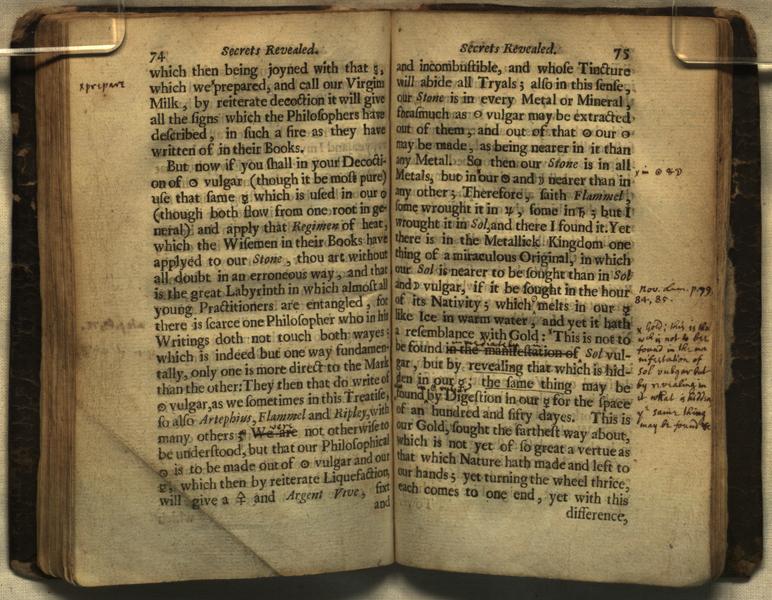 74
Secrets Revealed.
which then being joyned with that ☿,
which we prepared, and call our Virgin
Milk, by reiterate decoction it will give
all the signs which the Philosophers have
described, in such a fire as they have
written of in their Books.
But now if you shall in your Decocti-
on of ☉ vulgar (though it be most pure)
use that same ☿ which is used in our ☉
(though both flow from one root in ge-
neral) and apply that Regimen of heat,
which the Wisemen in their Books have
applyed to our Stone, thou art without
all doubt in an erroneous way, and that
is the great Labyrinth in which almost all
young Practitioners are entangled, for
there is scarce one Philosopher who in his
Writings doth not touch both wayes;
which is indeed but one way fundamen-
tally, only one is more direct to the Mark
than the other: They then that do write of
☉ vulgar, as we sometimes in this Treatise,
so also Artephius, Flammel and Ripley, with
many others; We are not otherwise to
be understood, but that our Philosophical
☉ is to be made out of ☉ vulgar and our
☿, which then by reiterate Liquefaction,
will give a 🜍 and Argent Vive, fixt
and
x prepare
Secrets Revealed.
75
and incombustible, and whose Tincture
will abide all Tryals; also in this sense,
our Stone is in every Metal or Mineral,
forasmuch as ☉ vulgar may be extracted
out of them, and out of that ☉ our ☉
may be made, as being nearer in it than
any Metal. So then our Stone is in all
Metals, but in our ☉ and ☽ nearer than in
any other; Therefore, saith Flammel,
some wrought it in ♃, some in ♄; but I
wrought it in Sol, and there I found it. Yet
there is in the Metallick Kingdom one
thing of a miraculous Original, in which
our Sol is nearer to be sought than in Sol
and ☽ vulgar, if it be sought in the hour
of its Nativity; which melts in our ☿
like Ice in warm water, and yet it hath
a resemblance with Gold: This is not to
be found in the manifestation of Sol vul-
gar, but by revealing that which is hid-
den in our ☿; the same thing may be
found by Digestion in our ☿ for the space
of an hundred and fifty dayes. This is
our Gold, sought the farthest way about,
which is not yet of so great a vertue as
that which Nature hath made and left to
our hands; yet turning the wheel thrice,
each comes to one end, yet with this
difference,
x in ☉ & ☽
Nov. Lum. p. 79,
84, 85.
x Gold; this is
is not to be
found in the ma
nifestation of
Sol vulgar but
by revealing in
it what is hidden
ye same thing
may be found &c